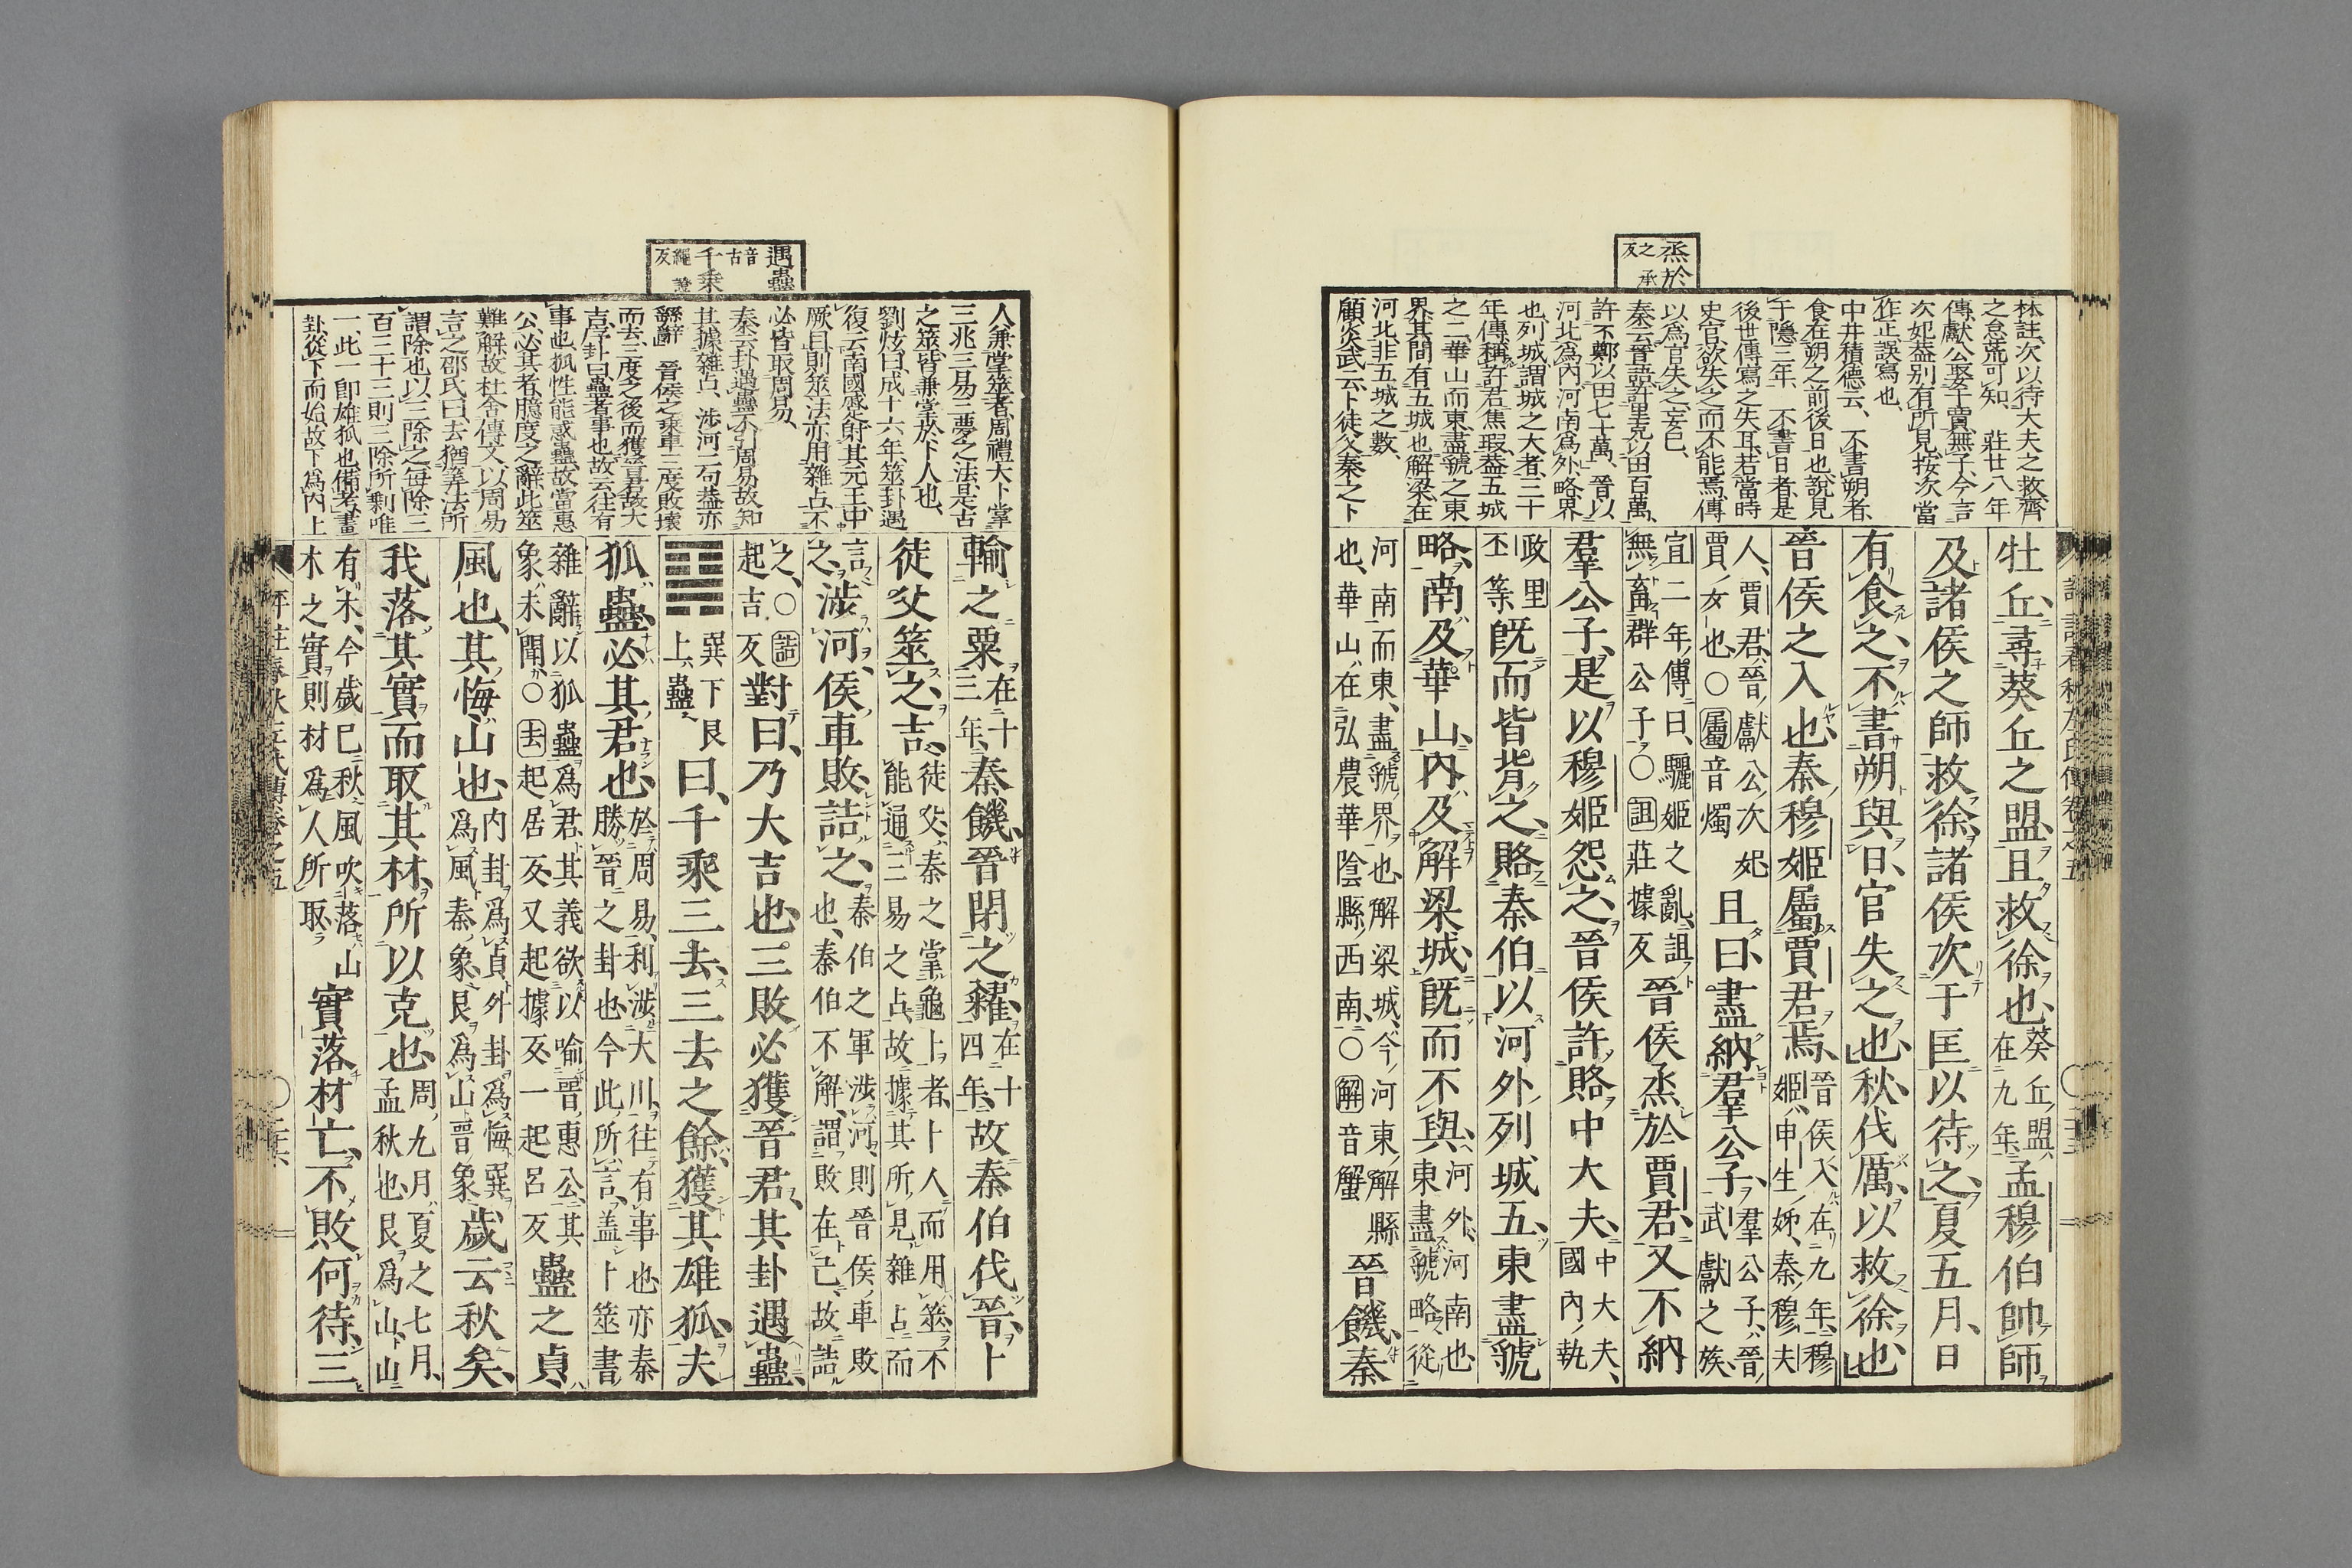 烝於 之承反
林註、次以待大夫之救齊
之怠荒可知、 莊廿八年
傳、獻公娶于賈、無子、今言
次妃、蓋別有所見、按次當
作正、誤寫也、
中井積德云、不書朔者、
食在朔之前後日也、說見
于隱三年、不書日者、是
後世傳寫之失耳、若當時
史官、欲失之而不能焉、傳
以爲官失之、妄已、
秦云、晉語、許里克以田百萬、
許丕鄭以田七十萬、 晉以
河北爲內、河南爲外、略界
也、列城、謂城之大者、三十
年傳稱、許君焦瑕、蓋五城
之二、華山而東、盡虢之東
界、其間有五城也、解梁在
河北、非五城之數、
顧炎武云、卜徒父秦之卜
牡丘、尋葵丘之盟、且救徐也、葵丘盟、在九年、孟穆伯帥師
及諸侯之師救徐、諸侯次于匡以待之、夏五月、日
有食之、不書朔與日、官失之也、秋、伐厲、以救徐也、
晉侯之入也、秦穆姬屬賈君焉、晉侯入在九年、穆姬申生姊、秦穆夫
人、賈君、晉獻公次妃賈女也○屬音燭且曰、盡納羣公子、羣公子、晉武獻之族、
宣二年傳曰、驪姬之亂、詛無畜群公子○詛莊據反晉侯烝於賈君、又不納
羣公子、是以穆姬怨之、晉侯許賂中大夫、中大夫、國內執
政里丕等既而皆背之、賂秦伯以河外列城五、東盡虢
略、南及華山、內及解梁城、既而不與、河外、河南也、東盡虢略、從
河南而東、盡虢界也、解梁城、今河東解縣也、華山在弘農華陰縣西南、○解音蟹晉饑、秦
遇蠱 音古 千乘 繩證反
人、兼掌筮者、周禮大卜掌
三兆三易三夢之法、是古
之筮、皆兼掌於卜人也、
劉炫曰、成十六年、筮卦遇
復、云南國蹙、射其元王、中
厥目、則筮法亦用雜占、不
必皆取周易、
秦云、卦遇蠱、不引周易、故知
其據雜占、 涉河二句、蓋亦
繇辭、 晉侯之乘車三度敗壞
而去、三度之後而獲晉君、故大
吉、序卦曰、蠱者事也、故云往有
事也、狐性能惑蠱、故當惠
公、必其者、臆度之辭、此筮
難解、故杜舍傳文、以周易
言之、邵氏曰、去、猶筭法所
謂除也、以三除之、每除三
百三十三、則三除所剩唯
一、此一卽雄狐也、備考、畫
卦、從下而始、故下爲內、上
輸之粟、在十三年、秦饑、晉閉之糴、在十四年、故秦伯伐晉、卜
徒父筮之、吉、徒父、秦之掌龜卜者、卜人而用筮、不能通三易之占、故據其所見雜占而
言之、涉河、侯車敗、詰之、秦伯之軍涉河、則晉侯車敗也、秦伯不解、謂敗在己、故詰
之、○詰起吉反對曰、乃大吉也、三敗必獲晉君、其卦遇蠱、
巽下艮上、蠱曰、千乘三去、三去之餘、獲其雄狐、夫
狐蠱、必其君也、於周易、利涉大川、往有事也、亦秦勝晉之卦也、今此所言、蓋卜筮書
雜辭、以狐蠱爲君、其義欲以喻晉惠公、其象未聞○去起居反又起據反一起呂反蠱之貞、
風也、其悔、山也、內卦爲貞、外卦爲悔、巽爲風秦象、艮爲山晉象歲云秋矣、
我落其實、而取其材、所以克也、周九月、夏之七月、孟秋也、艮爲山、山
有木、今歲已秋、風吹落山木之實、則材爲人所取實落材亡、不敗何待、三